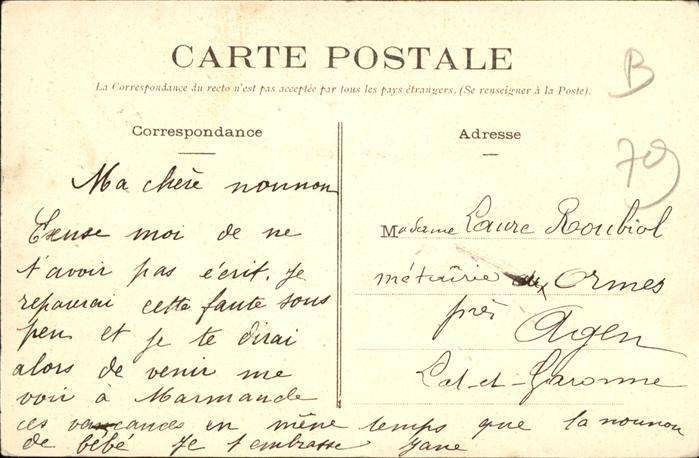 CARTE POSTALE
La Correspondance du recto n'est pas acceptée par tous les pays étrangers. (Se renseigner à la Poste).
B
70
Correspondance
Ma chère nounou
Excuse moi de ne
t'avoir pas écrit. Je
reparerai cette faute sous
peu et je te dirai
alors de venir me
voir à Marmande
ces vacances en même temps que la nounou
de bébé Je t'embrasse
Adresse
Madame Laure Roubiol
métairie Ormes
près Agen
Lot-et-Garonne